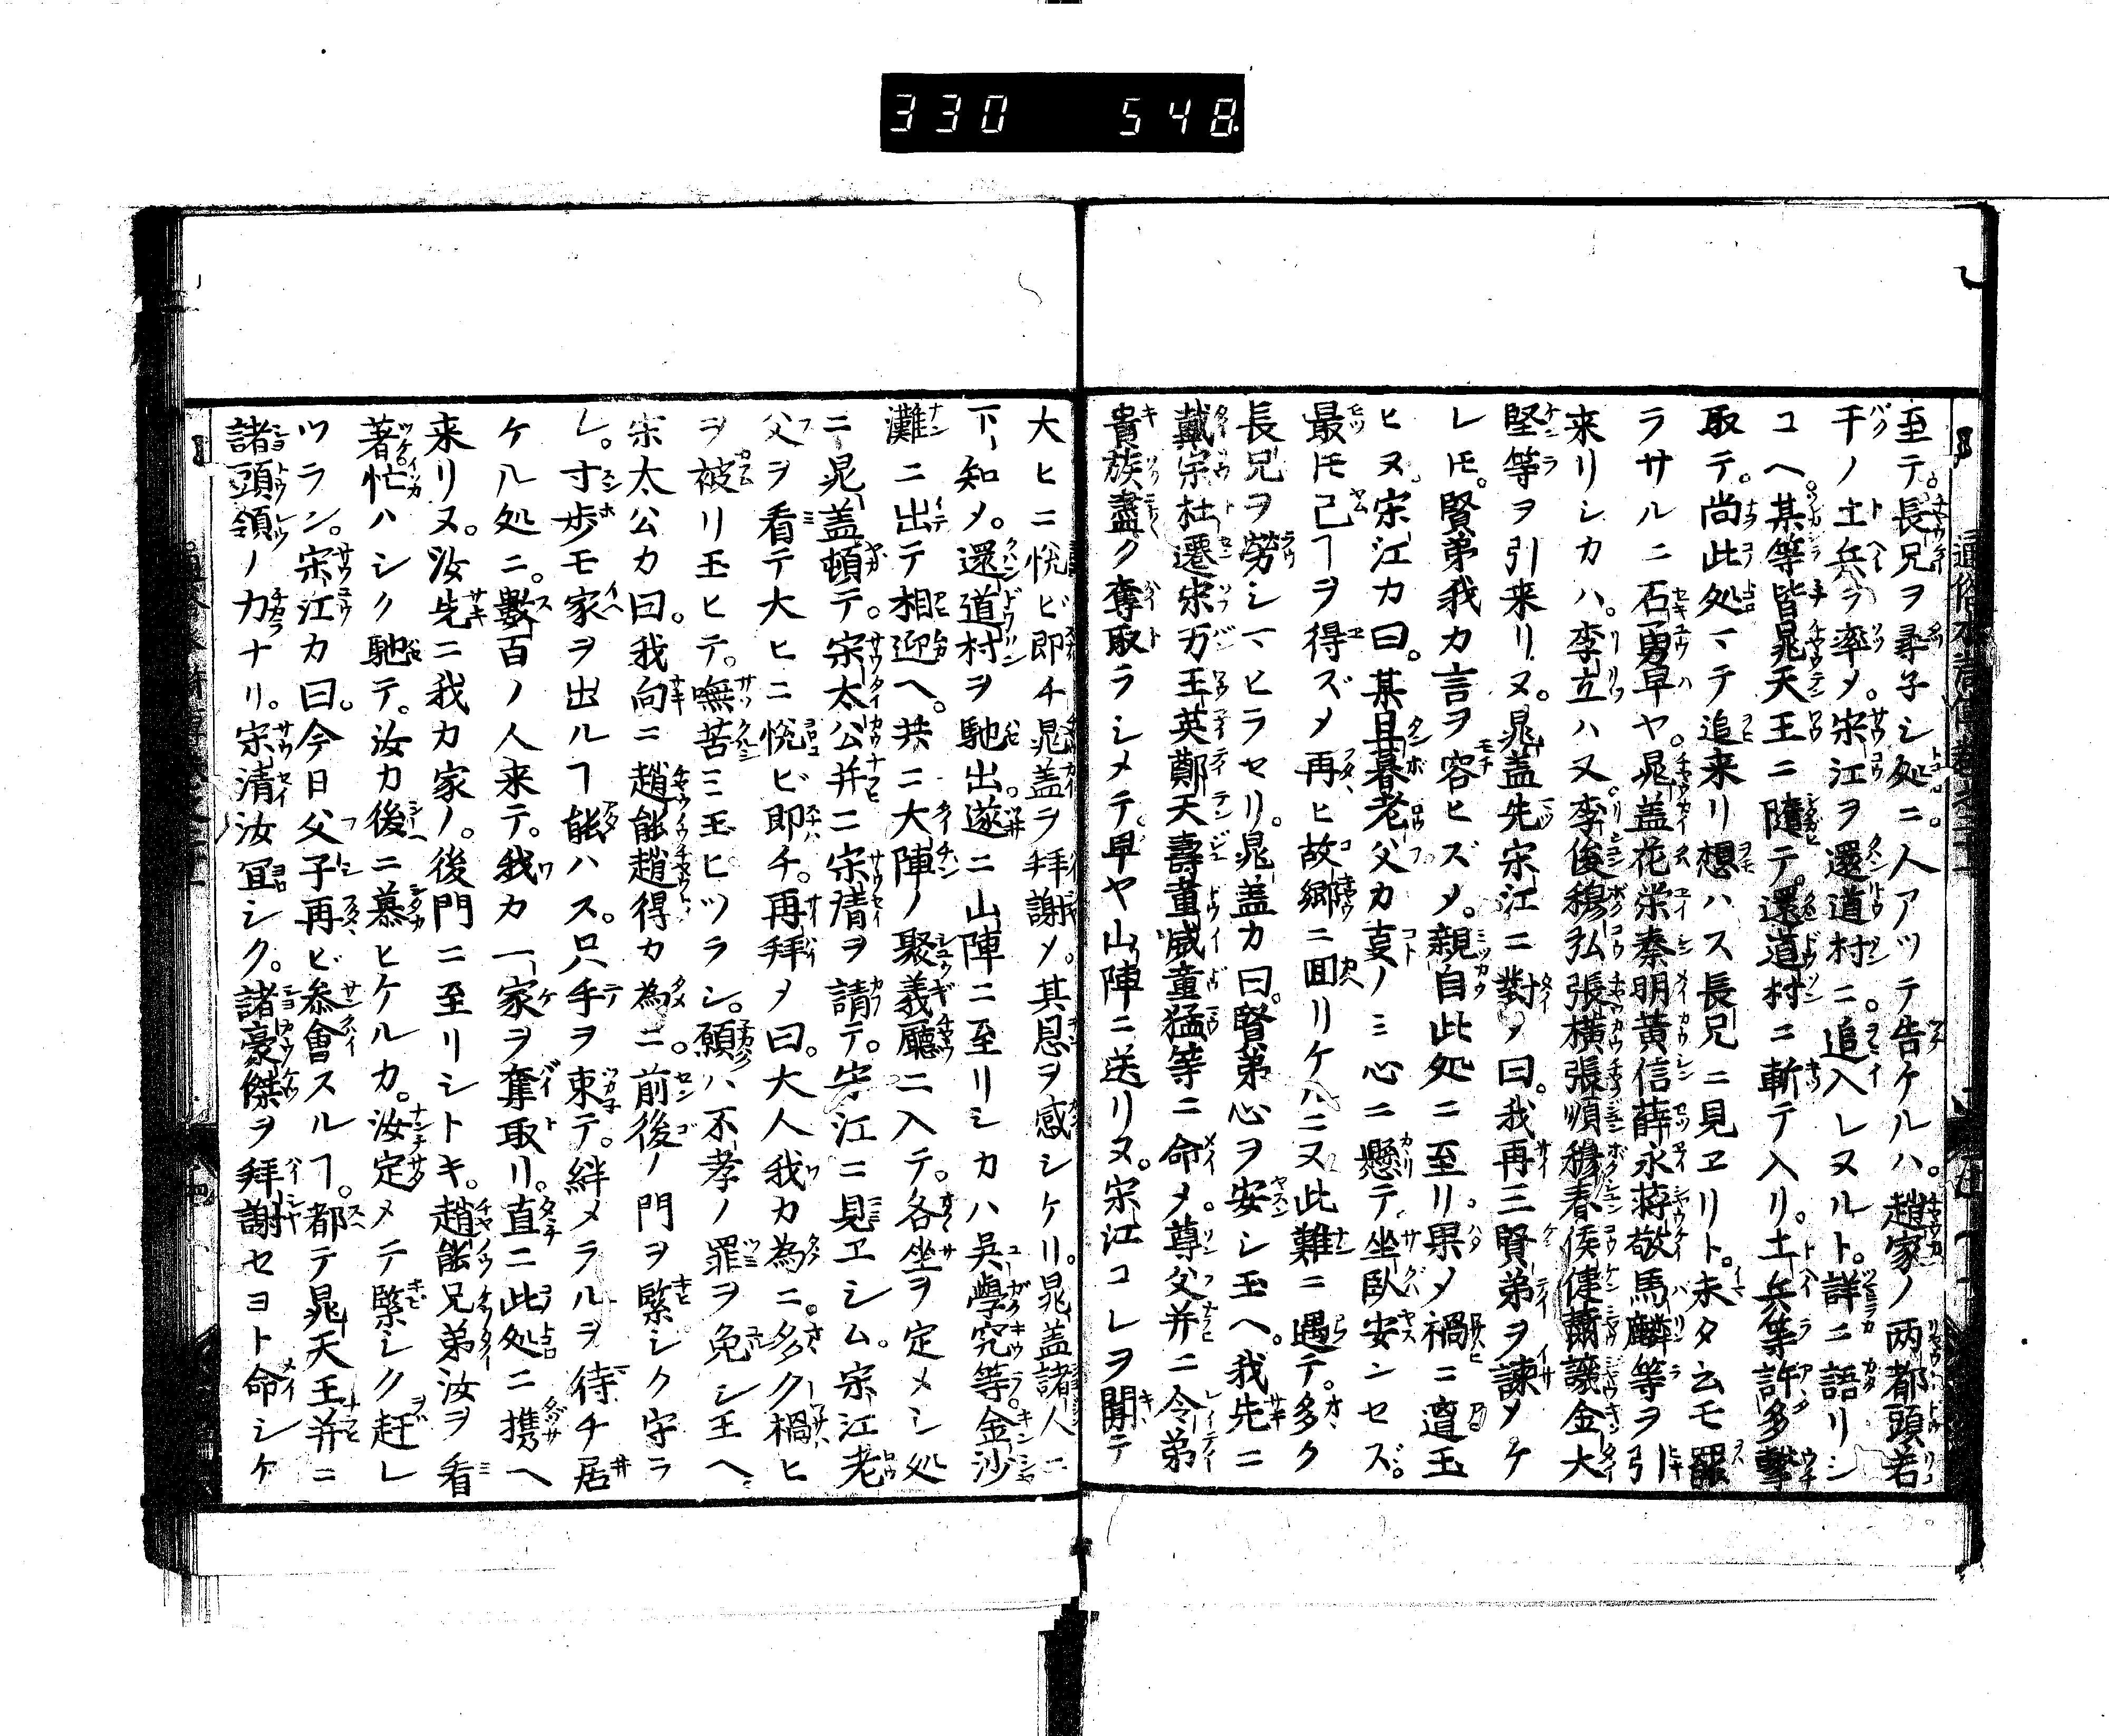 330 548
至テ。長兄ヲ尋子シ処ニ。人アツテ告ケルハ。趙家ノ两都頭若
干ノ土兵ヲ率メ。宋江ヲ還道村ニ。追入レヌルト。詳ニ語リシ
コヘ。某等皆晁天王ニ隨テ。還道村ニ斬テ入リ。土兵等許多擊
取テ。尚此処マテ追来リ想ハス長兄ニ見ヱリト。未タ云モ罷
ラサルニ石勇早ヤ。晁盖花栄秦明黃信薛永蒋敬馬麟等ヲ引
来リシカハ。李立ハ又李俊穆弘張橫張順穆春侯健蕭讓金大
堅等ヲ引来リヌ。晁盖先宋江ニ對ノ曰。我再三賢弟ヲ諫メケ
レ𪜈。賢弟我カ言ヲ容ヒズメ。親自此処ニ至リ。果メ禍ニ遭玉
ヒヌ。宋江カ曰。某且暮老父カ叓ノミ心ニ懸テ。坐臥安ンセズ。
最𪜈己ヿヲ得ズメ再ヒ故郷ニ囬リケハニヌ此難ニ遇テ。多ク
長兄ヲ勞シマヒラセリ。晁盖カ曰。賢弟心ヲ安シ玉ヘ。我先ニ
戴宗杜遷宋万王英鄭天壽童威童猛等ニ命メ。尊父并ニ令弟
貴族盡ク奪取ラシメテ。早ヤ山陣ニ送リヌ。宋江コレヲ聞テ
大ヒニ悅ビ即チ晁盖ヲ拜謝メ。其恩ヲ感シケリ。晁盖諸人ニ
下知メ。還道村ヲ馳出。遂ニ山陣ニ至リシカハ吳學究等。金沙
灘ニ出テ相迎ヘ。共ニ大陣ノ聚義廳ニ入テ。各坐ヲ定メシ処
ニ晁盖頓テ。宋太公并ニ宋清ヲ請テ。宋江ニ見ヱシム。宋江老
父ヲ看テ大ヒニ悅ビ即チ。再拜メ曰。大人我カ為ニ。多ク禍ヒ
ヲ被リ玉ヒテ。嘸苦ミ玉ヒツラシ。願ハ不孝ノ罪ヲ免シ玉ヘ
宗太公カ曰。我向ニ趙能趙得カ為ニ。前後ノ門ヲ緊シク守ラ
レ。寸步モ家ヲ出ルヿ能ハス。只手ヲ束テ。絆メラルヲ待チ居
ケル処ニ。數百ノ人来テ。我カ一家ヲ奪取リ。直ニ此処ニ携ヘ
来リヌ。汝先ニ我カ家ノ。後門ニ至リシトキ。趙能兄弟汝ヲ看
著忙ハシク馳テ。汝カ後ニ慕ヒケルカ。汝定メテ緊シク赶レ
ツラン。宋江カ曰。今日父子再ビ參會スルヿ。都テ晁天王并ニ
諸頭領ノ力ナリ。宋清汝宜シク。諸豪傑ヲ拜謝セヨト命シケ